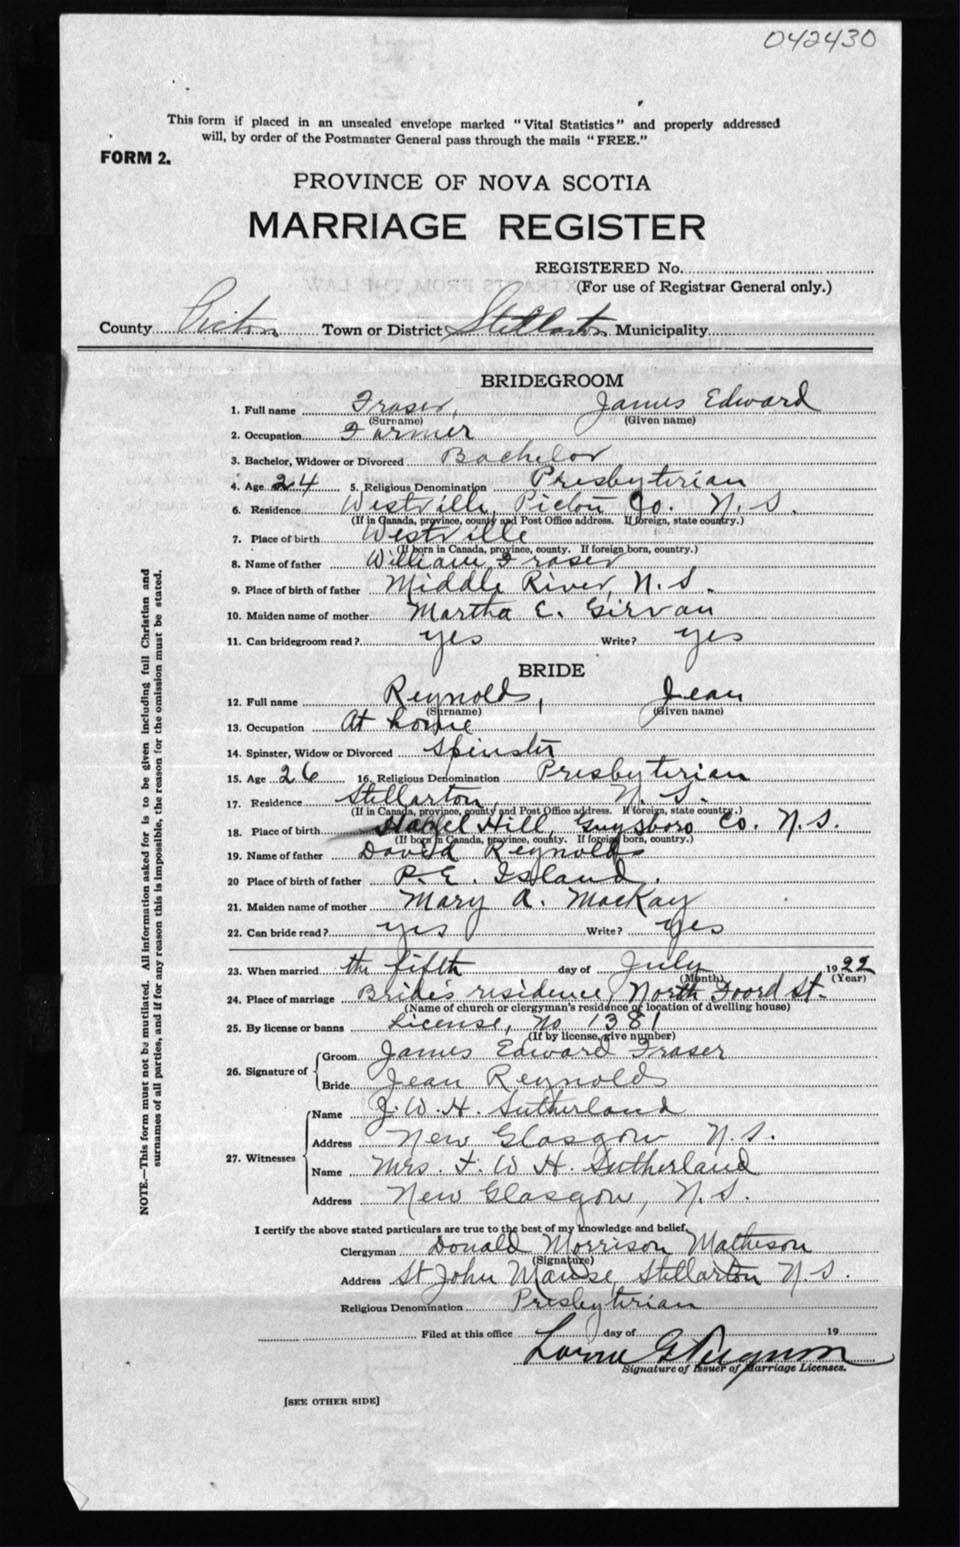 042430
This form if placed in an unsealed envelope marked "Vital Statistics" and properly addressed
will, by order of the Postmaster General pass through the mails "FREE."
FORM 2.
PROVINCE OF NOVA SCOTIA
MARRIAGE REGISTER
REGISTERED No.
(For use of Registrar General only.)
County Pictou Town or District Stellarton Municipality
BRIDEGROOM
1. Full name Fraser, James Edward
(Surname) (Given name)
2. Occupation Farmer
3. Bachelor, Widower or Divorced Bachelor
4. Age 24 5. Religious Denomination Presbyterian
6. Residence Westville, Pictou Co. N.S.
(If in Canada, province, county and Post Office address. If foreign, state country.)
7. Place of birth Westville
(If born in Canada, province, county. If foreign born, country.)
8. Name of father William Fraser
9. Place of birth of father Middle River, N.S.
10. Maiden name of mother Martha E. Girvan
11. Can bridegroom read? yes Write? yes
BRIDE
12. Full name Reynolds, Jean
(Surname) (Given name)
13. Occupation At home
14. Spinster, Widow or Divorced Spinster
15. Age 26 16. Religious Denomination Presbyterian
17. Residence Stellarton, N.S.
(If in Canada, province, county and Post Office address. If foreign, state country.)
18. Place of birth Hazel Hill, Guysboro Co. N.S.
(If born in Canada, province, county. If foreign born, country.)
19. Name of father David Reynolds
20 Place of birth of father P.E. Island.
21. Maiden name of mother Mary A. MacKay
22. Can bride read? yes Write? yes
23. When married the fifth day of July 1922
(Month) (Year)
24. Place of marriage Bride's residence, North Foord St.
(Name of church or clergyman's residence or location of dwelling house)
25. By license or banns License, No 1381
(If by license, give number)
26. Signature of
Groom James Edward Fraser
Bride Jean Reynolds
27. Witnesses
Name J.W.H. Sutherland
Address New Glasgow N.S.
Name Mrs. J. W H. Sutherland
Address New Glasgow, N.S.
I certify the above stated particulars are true to the best of my knowledge and belief.
Clergyman Donald Morrison Matheson
(Signature)
Address St John Manse, Stellarton N.S.
Religious Denomination Presbyterian
Filed at this office day of 19
Lorne G Ferguson
Signature of Issuer of Marriage Licenses.
[SEE OTHER SIDE]
NOTE.—This form must not be mutilated. All information asked for is to be given including full Christian and
surnames of all parties, and if for any reason this is impossible, the reason for the omission must be stated.